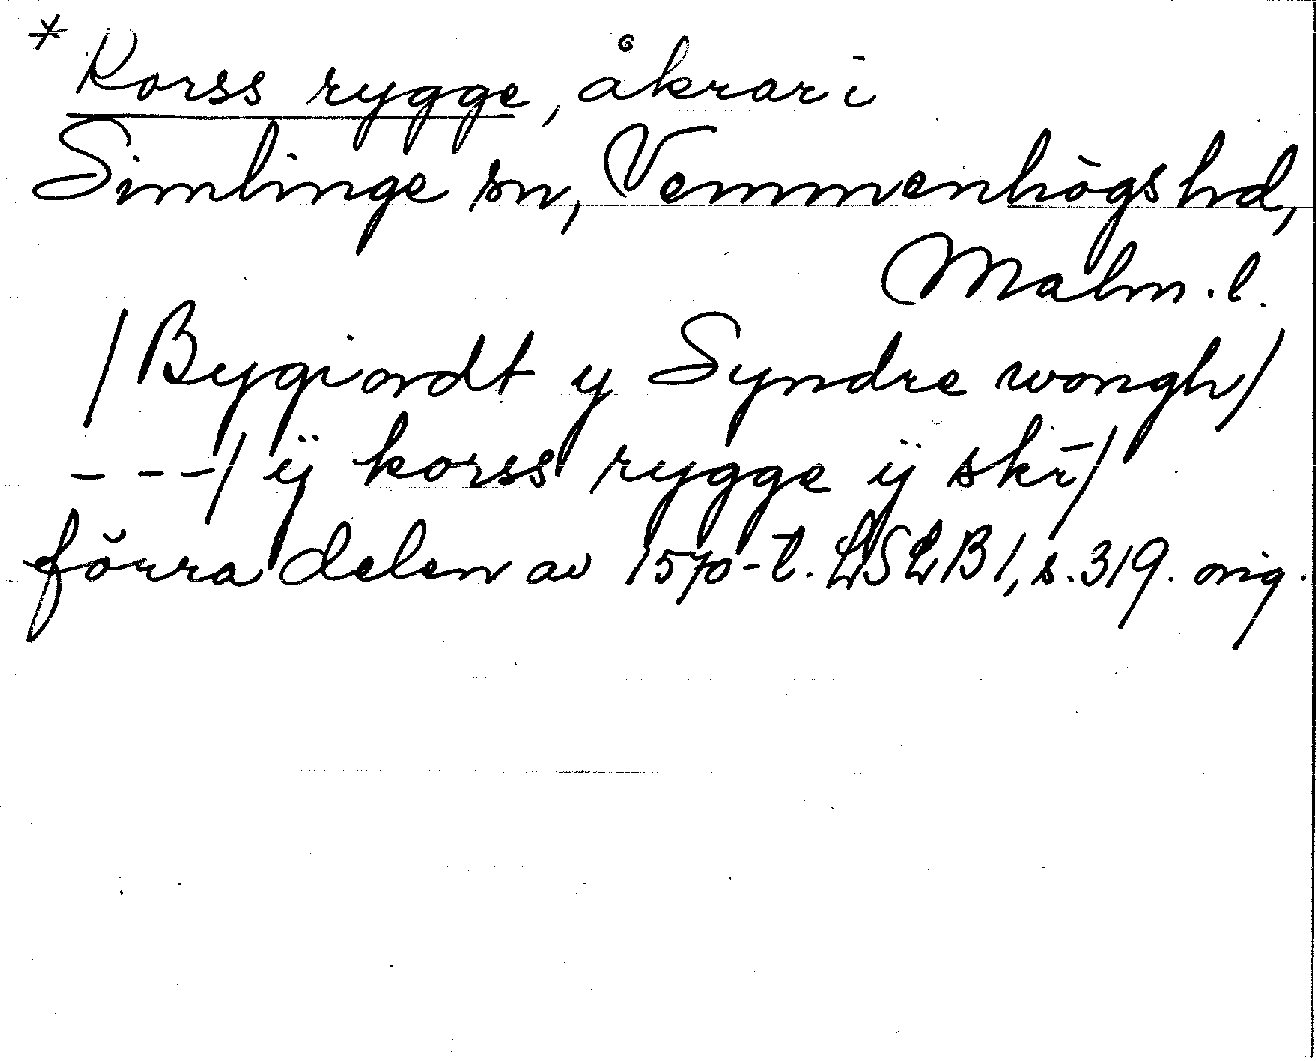 * Korss rygge, åkrar i
Simlinge sn, Vemmenhögs hd,
Malm. l.
/Bygiordt y Syndre wongh/
---/ ÿ korss rygge ÿ skr̄/
förra delen av 1570-t. LSLB1, s. 319. orig.